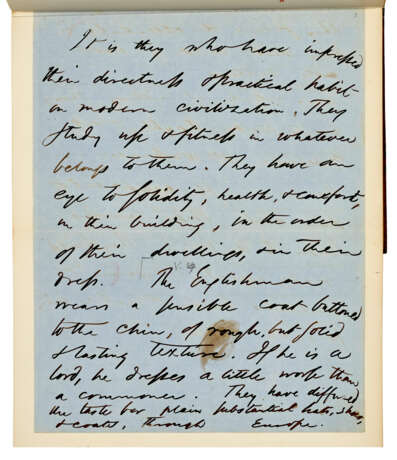 It is they who have impressed
their directness & practical habit
on modern civilization. They
study use & fitness in whatever
belongs to them. They have an
eye to solidity, health, & comfort,
in their building, in the order
of their dwellings, & in their
dress. The Englishman
wears a sensible coat buttoned
to the chin, of rough but solid
& lasting texture. If he is a
lord, he dresses a little worse than
a commoner. They have diffused
the taste for plain substantial hats, shoes,
& coats, through Europe.